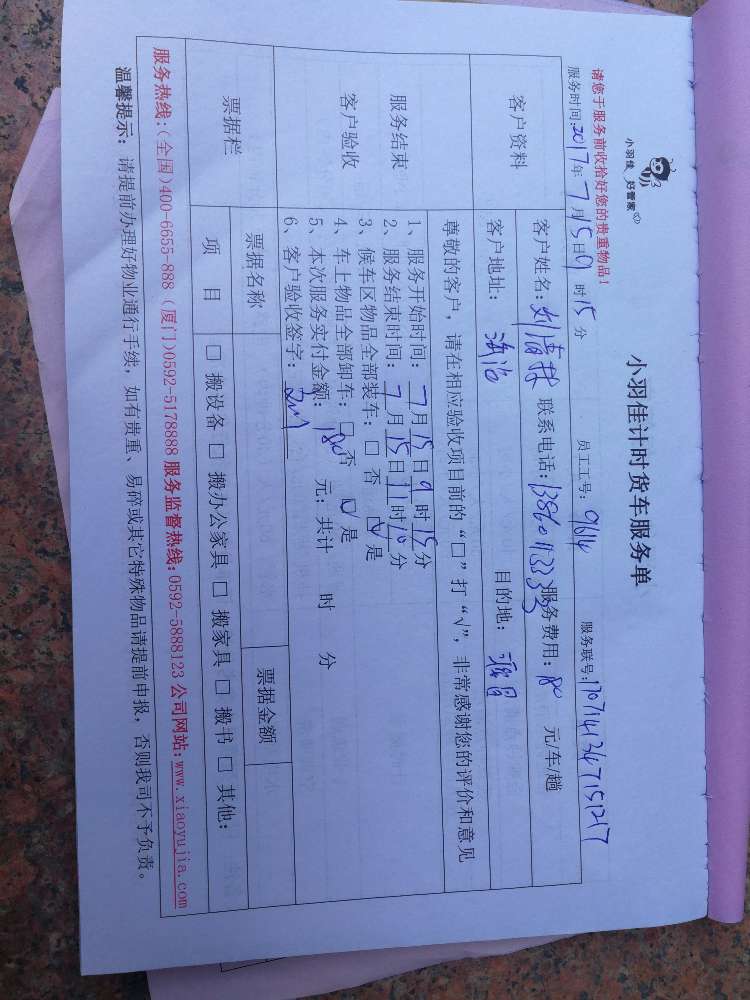 小羽佳 好管家
小羽佳计时货车服务单
请您于服务前收拾好您的贵重物品！
服务时间:2017年7月15日9时15分 员工工号: 9614 服务联号:
客户资料
客户姓名: 联系电话: 服务费用: 元/车/趟
客户地址: 目的地:
尊敬的客户，请在相应验收项目前的“□”打“√”，非常感谢您的评价和意见
服务结束
客户验收
1、服务开始时间: 7月15日9时15分
2、服务结束时间: 7月15日11时10分
3、候车区物品全部装车: □ 否 ☑ 是
4、车上物品全部卸车: □ 否 ☑ 是
5、本次服务实付金额: 180 元: 共计 时 分
6、客户验收签字:
票据栏
票据名称 票据金额
项 目 □ 搬设备 □ 搬办公家具 □ 搬家具 □ 搬书 □ 其他:
服务热线:(全国)400-6655-888 (厦门)0592-5178888 服务监督热线:0592-5888123 公司网站:www.xiaoyujia.com
温馨提示: 请提前办理好物业通行手续，如有贵重、易碎或其它特殊物品请提前申报，否则我司不予负责。